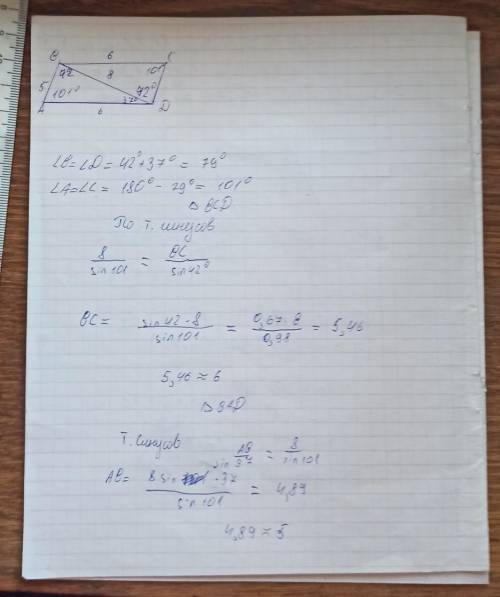 B 6 C
42 8 101°
5 101° 37° 42°
A 6 D
∠B=∠D=42°+37°=79°
∠A=∠C=180°-79°=101°
△BCD
По т. синусов
8/sin101 = BC/sin42°
BC= sin42·8/sin101 = 0,67·8/0,98 = 5,46
5,46≈6
△BAD
Т. синусов AB/sin37 = 8/sin101
AB= 8sin·37/sin101 = 4,89
4,89≈5